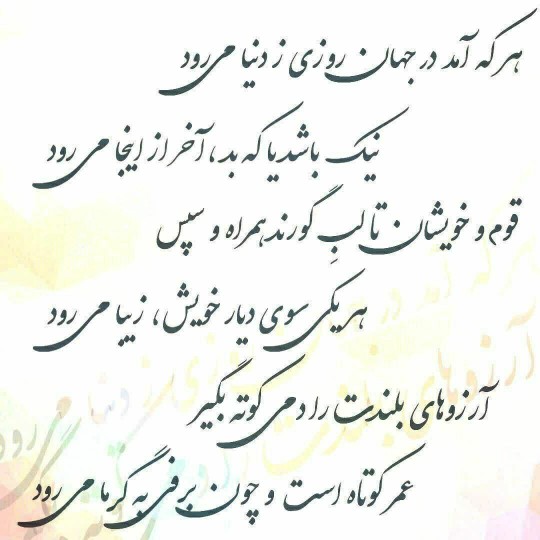 هر که آمد در جهان روزی ز دنیا می رود
نیک باشد یا که بد، آخر از اینجا می رود
قوم و خویشان تا لبِ گورند همراه و سپس
هر یکی سوی دیار خویش، زیبا می رود
آرزوهای بلندت را دمی کوته بگیر
عمر کوتاه است و چون برفی به گرما می رود